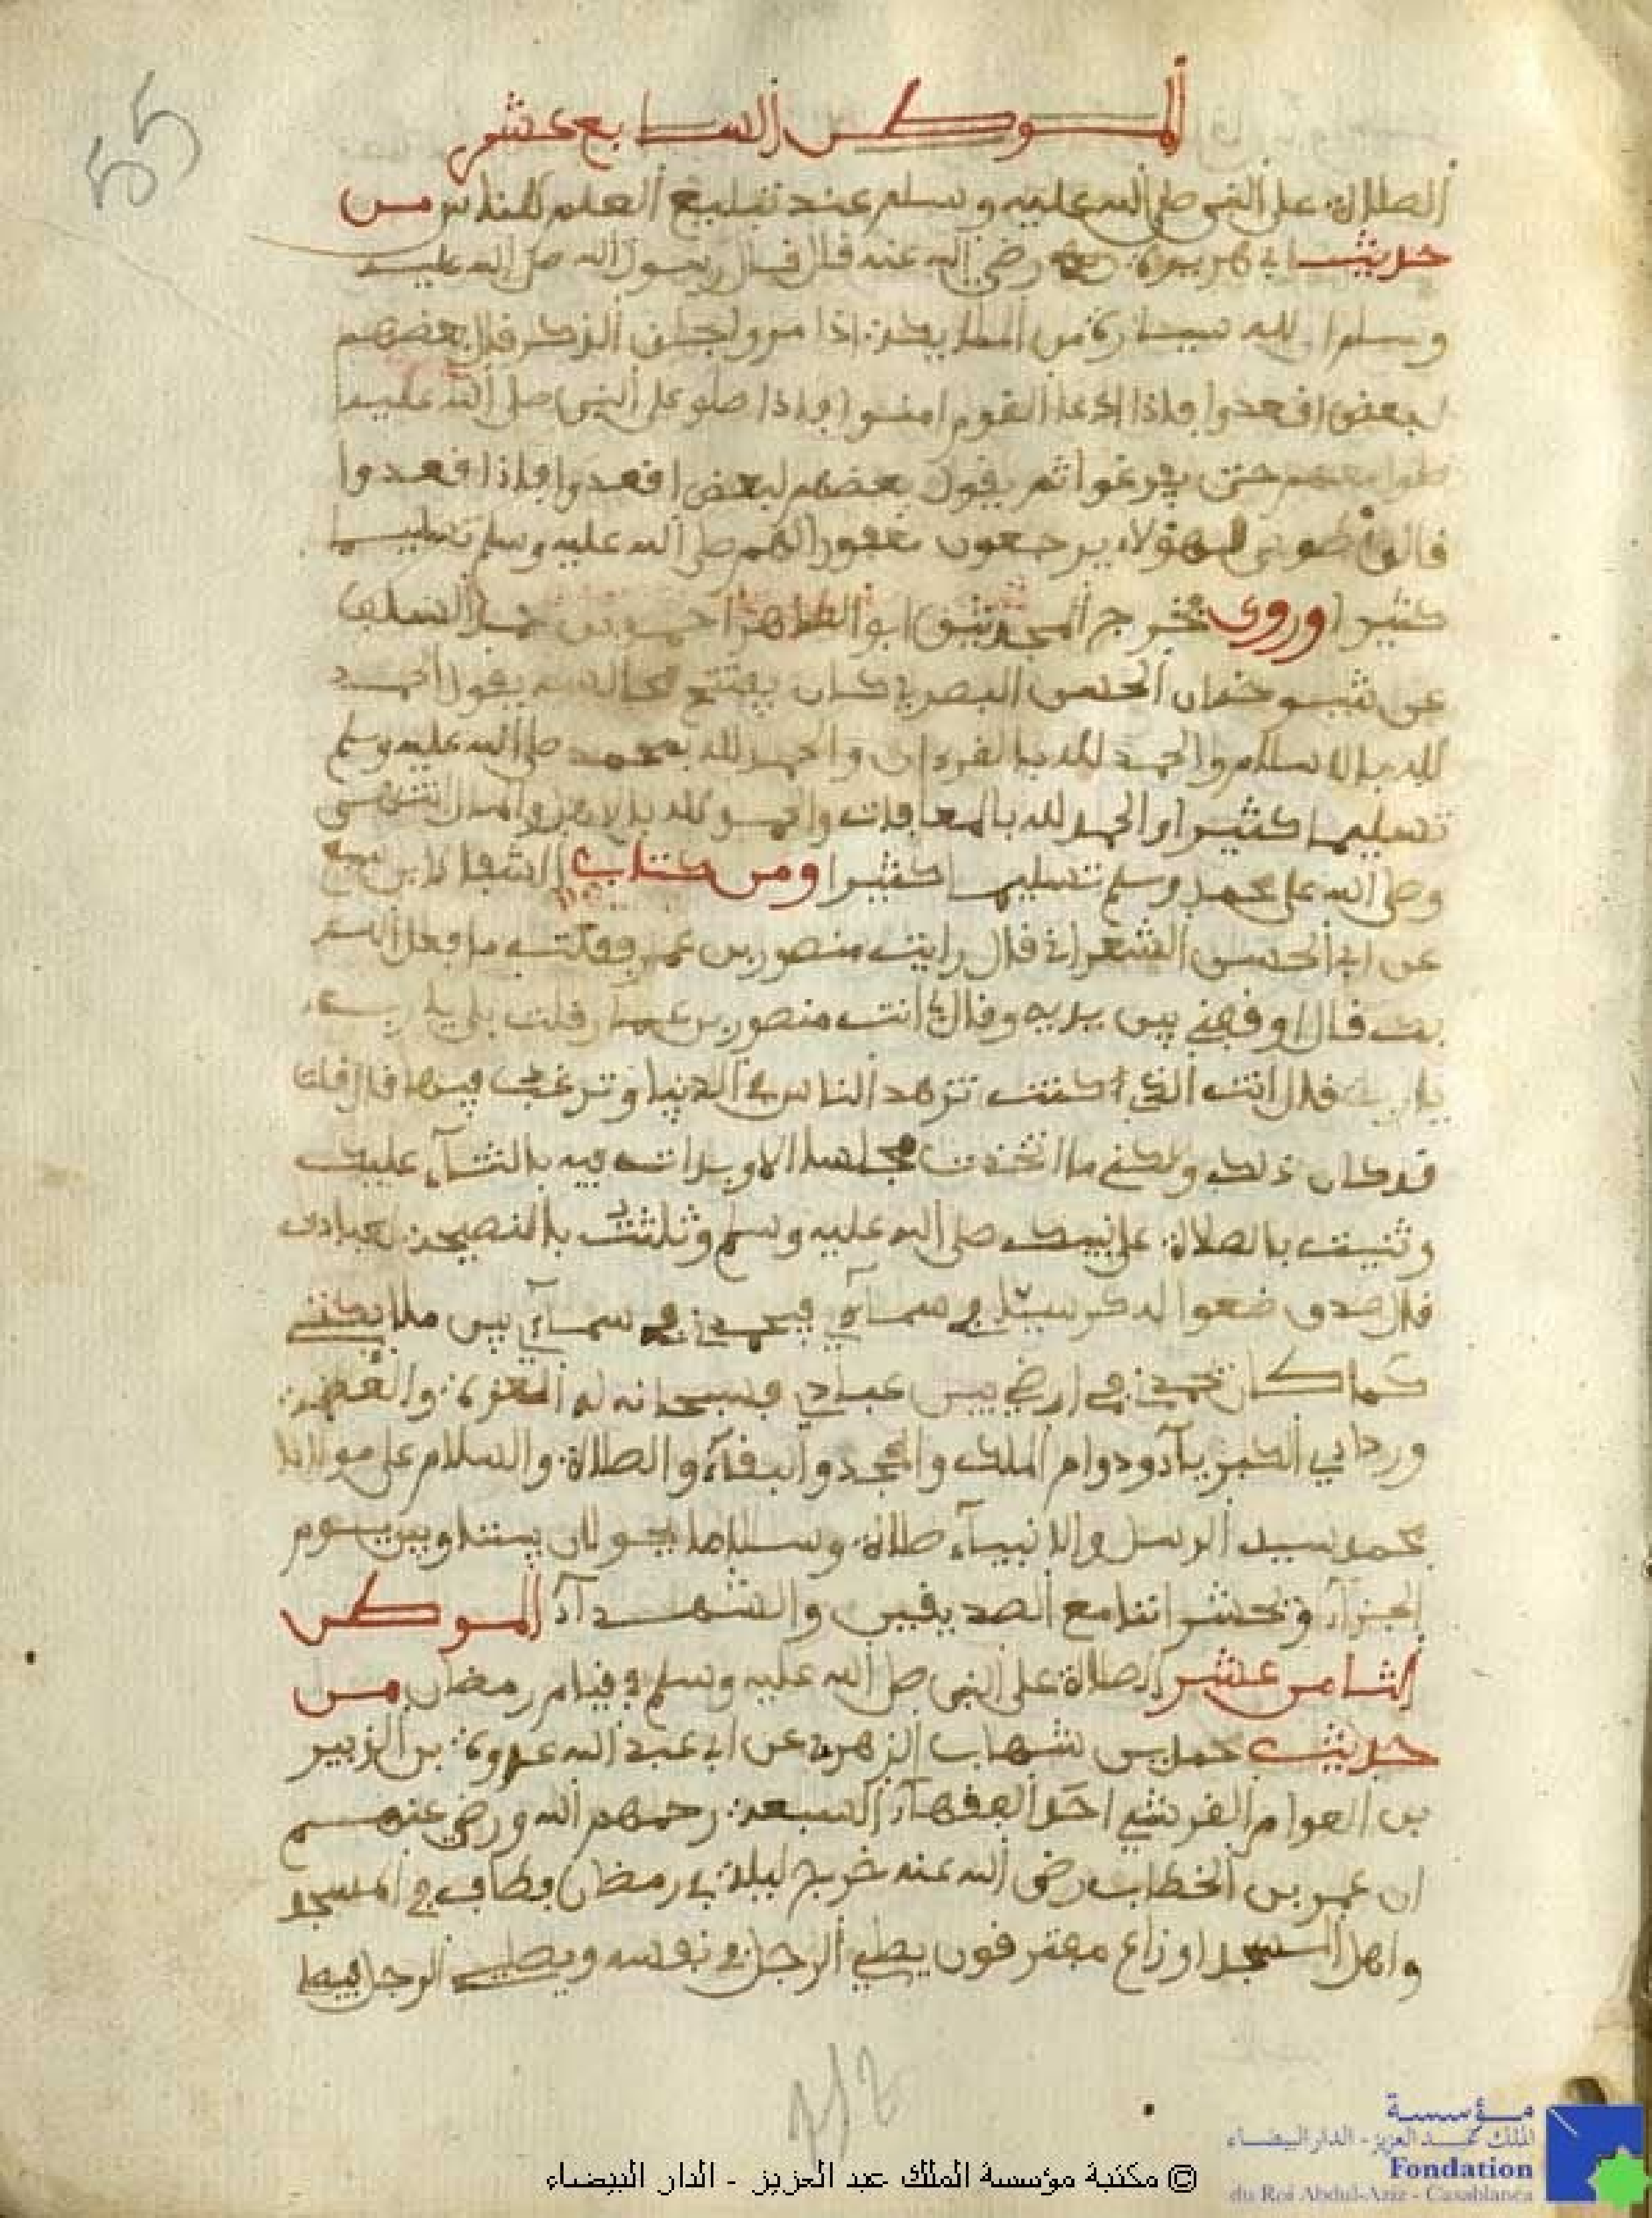 55
الموطن السابع عشر
الصلاة على النبي صلى الله عليه وسلم عند تبليغ العلم للناس من
حديث ابي هريرة رضي الله عنه قال قال رسول الله صلى الله عليه
وسلم ان لله سيارة من الملايكة اذا مروا بحلق الذكر قال بعضهم
لبعض اقعدوا فاذا ادعا القوم امنوا فاذا صلو على النبي صلى الله عليه
صلوا معهم حتى يفرغوا ثم يقول بعضهم لبعض اقعدوا فاذا قعدوا
قالوا طوبى لهؤلاء يرجعون مغفورا لهم صلى الله عليه وسلم تسليما
كثيرا وروى ابو الطاهر احمد بن السلفي
عن الحسن البصري كان يفتتح مجالسه يقول الحمد
لله بالاسلام والحمد لله بالقرءان والحمد لله بمحمد صلى الله عليه وسلم
تسليما كثيرا والحمد لله بالمعافات والحمد لله بالاهل والمال انتهى
وصلى الله على محمد وسلم تسليما كثيرا ومن كتاب الشفا لابن سبع
عن ابي الحسن الشعراني قال رايت منصور بن عمر فقلت ما فعل الله
بك قال اوقفني بين يديه وقال لي انت منصور بن عمار قلت بلى يا رب
يا رب قال انت الذي كنت تزهد الناس في الدنيا وترغب فيها قال قلت
قد كان ذلك ولكني ما اتخذت مجلسا الا وبدات فيه بالثناء عليك
وثنيت بالصلاة على نبيك صلى الله عليه وسلم وثلثت بالنصيحة لعبادك
قال صدق ضعوا له كرسيا في سمآئي فيمجدني في سمآئي بين ملايكتي
كما كان يمجدني في ارضي بين عبادي فسبحانه له العزة والعظمة
وردآئي الكبريآء ودوام الملك والمجد والبقآء والصلاة والسلام على مولانا
محمد سيد الرسل والانبيآء صلاة وسلاما يحولان بيننا وبين يوم
الجزآء وتحشرانا مع الصديقين والشهدآء الموطن
الثامن عشر الصلاة على النبي صلى الله عليه وسلم في قيام رمضان من
حديث محمد بن شهاب الزهري عن ابي عبد الله عروة بن الزبير
بن العوام القرشي احد الفقهآء السبعة رحمهم الله ورضي عنهم
ان عمر بن الخطاب رضي الله عنه خرج ليلة في رمضان فطاف في المسجد
واهل المسجد اوزاع مفترقون يصلي الرجل في نفسه ويصلي الرجل فيصلي
112
© مكتبة مؤسسة الملك عبد العزيز - الدار البيضاء
مؤسسة
الملك عبد العزيز - الدار البيضاء
Fondation
du Roi Abdul-Aziz - Casablanca